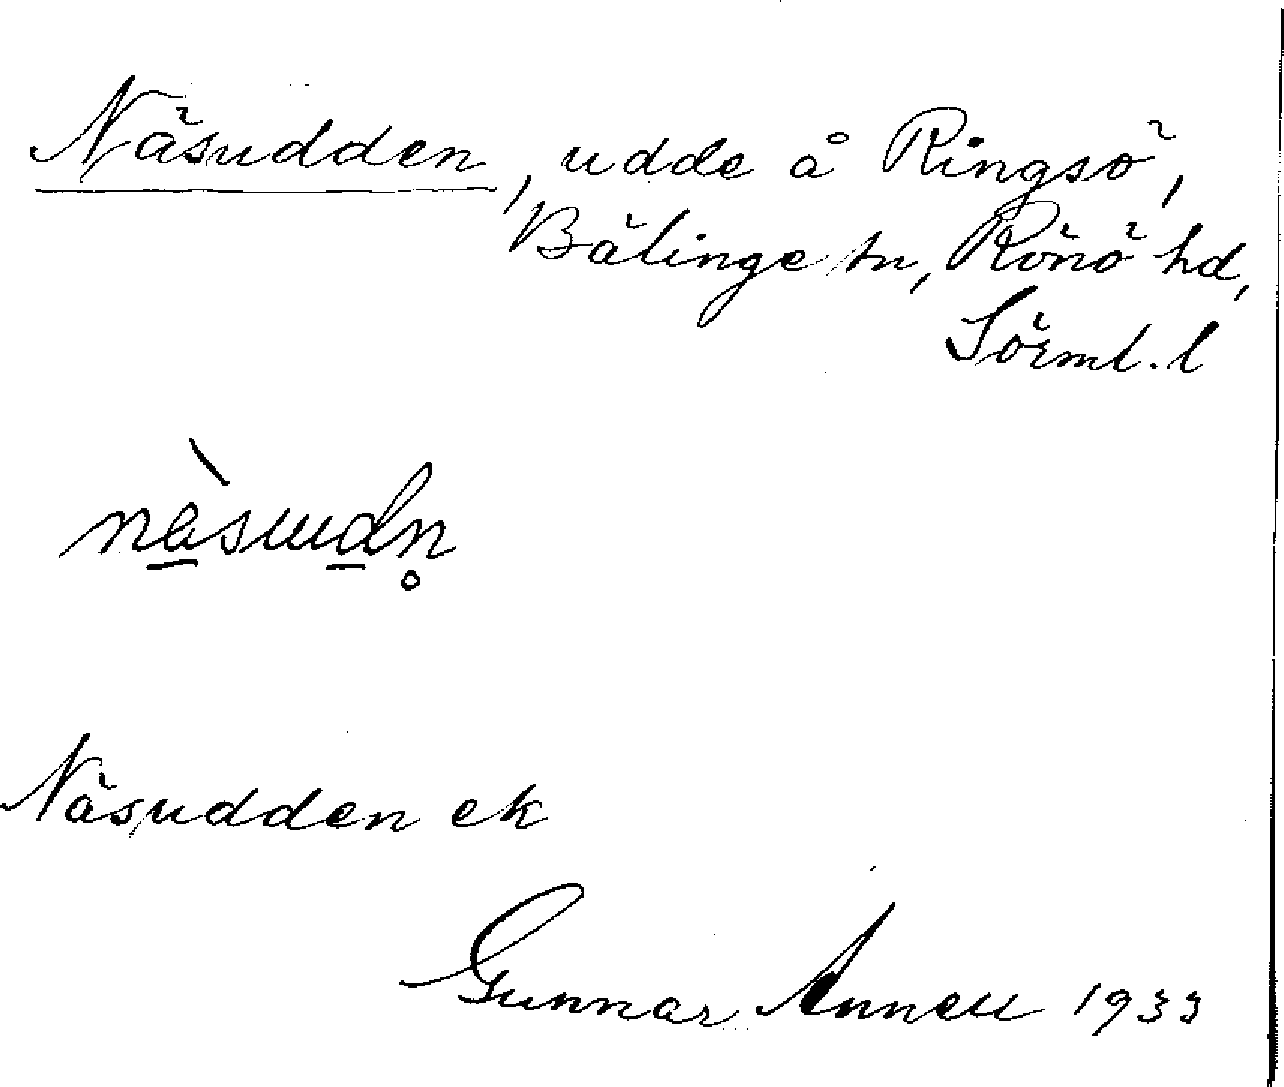 Näsudden, udde å Ringsö,
Bälinge sn, Rönö hd,
Sörml. l
Näsudden ek
Gunnar Annell 1933